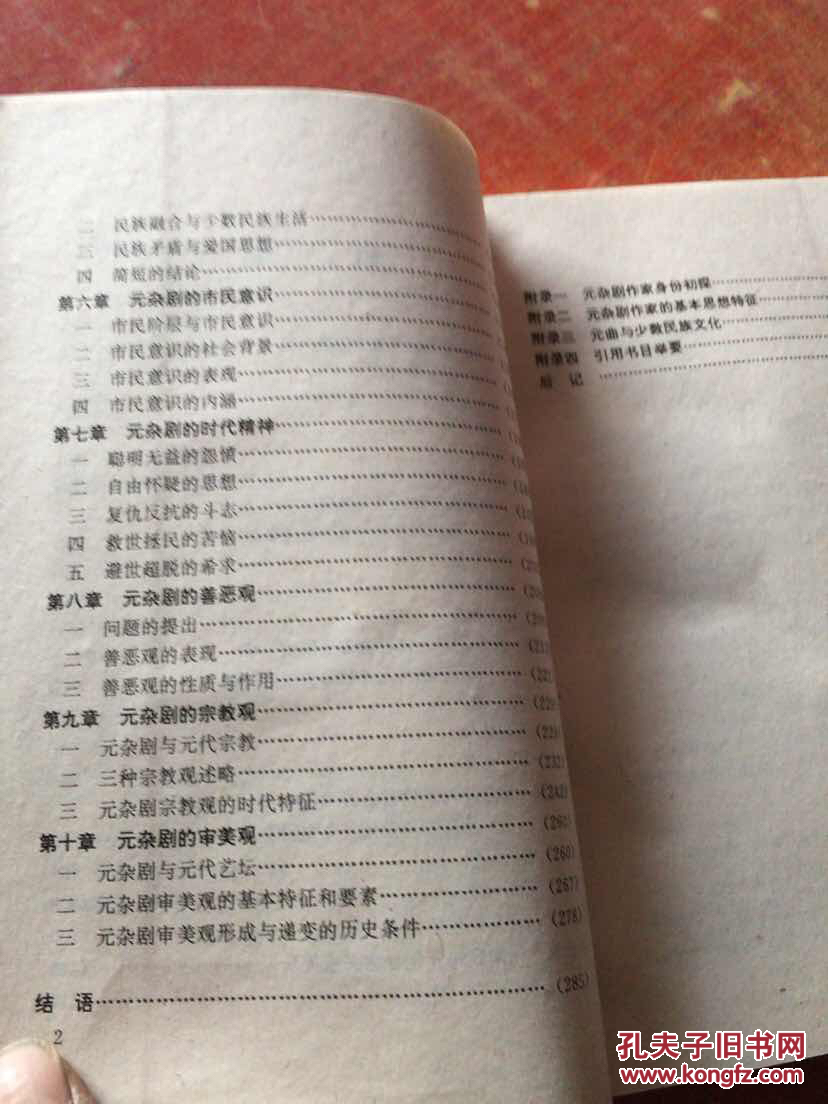 二 民族融合与少数民族生活……………………
三 民族矛盾与爱国思想……………………
四 简短的结论……………………
第六章 元杂剧的市民意识……………………
一 市民阶层与市民意识……………………
二 市民意识的社会背景……………………
三 市民意识的表现……………………
四 市民意识的内涵……………………
第七章 元杂剧的时代精神……………………
一 聪明无益的怨愤……………………
二 自由怀疑的思想……………………
三 复仇反抗的斗志……………………
四 救世拯民的苦恼……………………
五 避世超脱的希求……………………
第八章 元杂剧的善恶观……………………
一 问题的提出……………………
二 善恶观的表现……………………
三 善恶观的性质与作用……………………
第九章 元杂剧的宗教观……………………(229)
一 元杂剧与元代宗教……………………(229)
二 三种宗教观述略……………………(232)
三 元杂剧宗教观的时代特征……………………(242)
第十章 元杂剧的审美观……………………(260)
一 元杂剧与元代艺坛……………………(260)
二 元杂剧审美观的基本特征和要素……………………(267)
三 元杂剧审美观形成与递变的历史条件……………………(278)
结 语……………………(285)
2
附录一 元杂剧作家身份初探……………………
附录二 元杂剧作家的基本思想特征……………………
附录三 元曲与少数民族文化……………………
附录四 引用书目举要……………………
后 记……………………
孔夫子旧书网
www.kongfz.com